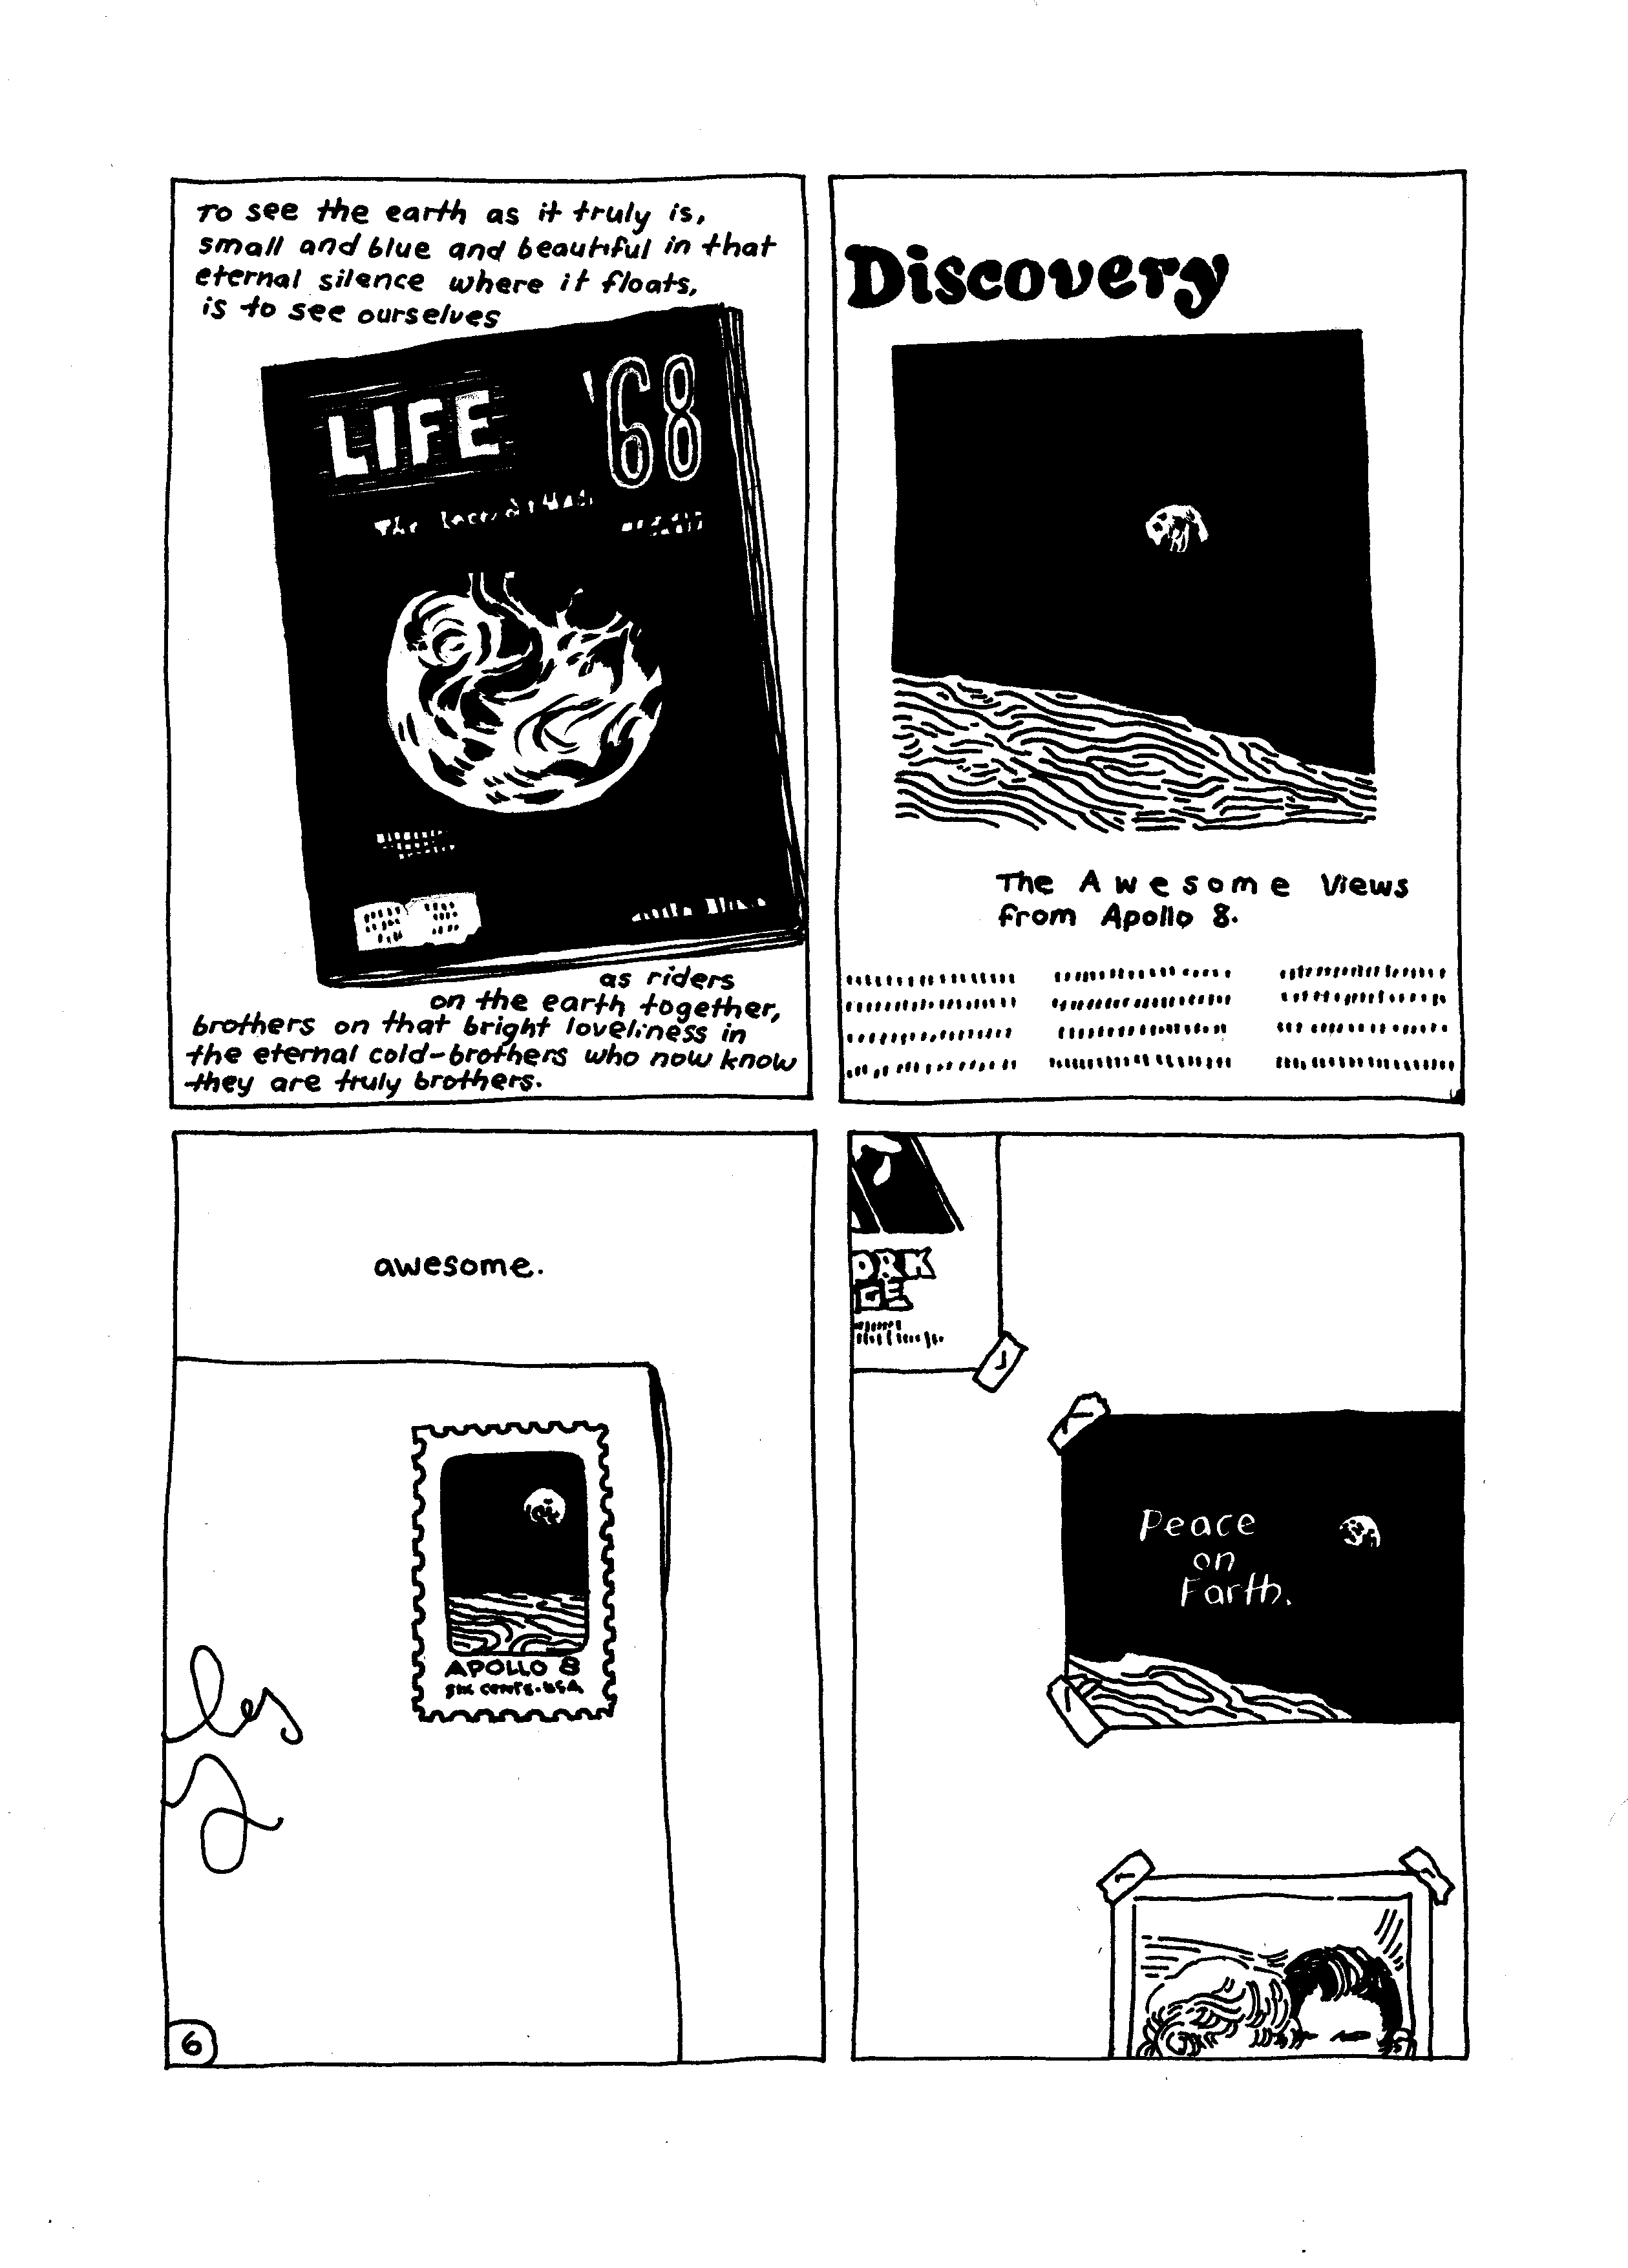 To see the earth as it truly is,
small and blue and beautiful in that
eternal silence where it floats,
is to see ourselves
LIFE '68
The
as riders
on the earth together,
brothers on that bright loveliness in
the eternal cold-brothers who now know
they are truly brothers.
Discovery
The Awesome Views
from Apollo 8.
awesome.
APOLLO 8
SIX CENTS·USA
les
6
ORK
GE
Peace
on
Earth.